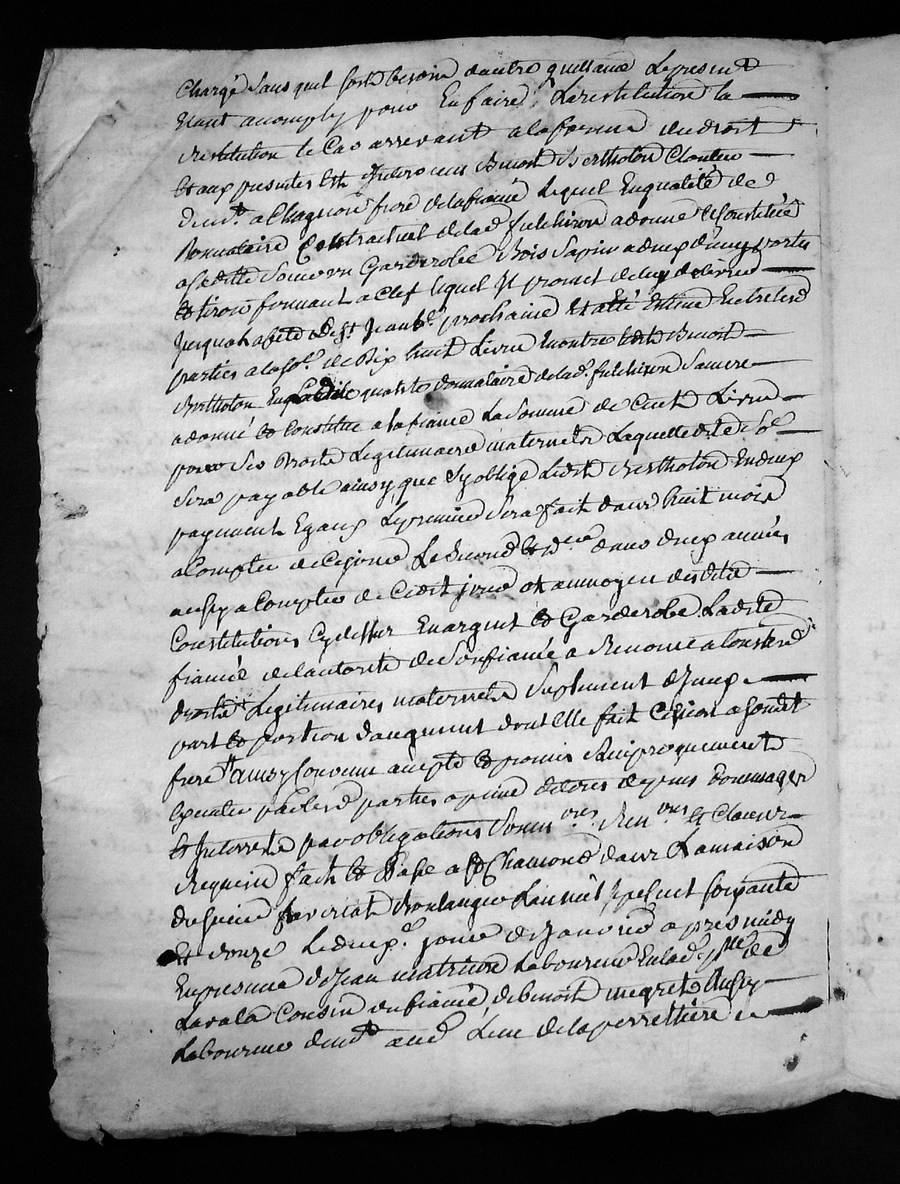 chargé sans quil soit besoin dautre quittance Le present
Etant accomply pour En faire La restitution la
restitution le Cas arrivant a la forme du droit
Et aux presentes Est Intervenu Benoit Bertholon Cloutier
demt a Chagnon frere de la fiancée Lequel En qualité de
Donnataire Contractuel de lad. futchiron a donné & Constitué
a sa ditte Soeur un Garderobe Bois Sapin a deux portes
& tiroir fermant a Clef lequel Il promet de luy delivrer
jusquoi a fete de St Jean Bte prochaine Et a été Estimé Entre lesd
parties a la so.e de Dix huit Livre Ledit Benoit
Bertholon En qualité donnataire de lad. futchiron Sa mere
a donné & Constitué a la fiancée La Somme de Cent Livre
pour Ses Droits Legitimaires maternels Laquelle dite So.e
Sera payable ainsy que sy oblige Ledit Bertholon En deux
payement Egaux Le premier Sera fait dans huit mois
a Compter de Ce jour Le Second & der dans deux années
aussy a Compter de Cedit jour et au moyen desdite
Constitutions Cy dessus En argent & Garderobe Ladite
fiancée de lautorité de Son fiancé a Renoncé a tous sesd
droits Legitimaires maternels Suplement dIceux
part & portion daugment dont Elle fait Cession a Sondit
frere Ainsy Convenu accepté & promis Reciproquement
Executer par lesd parties a peine de tous depens dommages
& Interrets par obligations Soumons Renons & Clauses
Requises fait & Passé a St Chamond dans La maison
du Sieur Boulanger Lan mil sept cent soixante
Et douze Le deux.e jour de Janvier apres midy
En presence de Jean matricon Laboureur En lad. pse de
Lavala Cousin du fiancé de benoit megret Aussy
Laboureur demt aud Lieu de la perrettiere